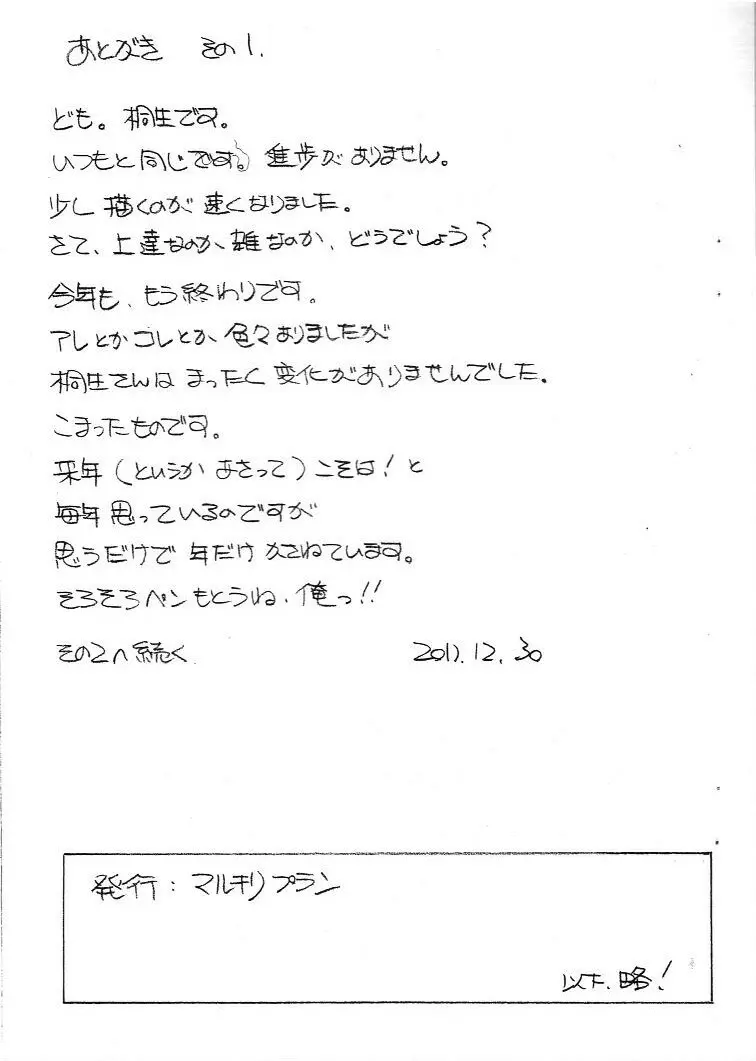 あとがき その1.
ども。桐生です。
いつもと同じです。進歩がありません。
少し描くのが速くなりました。
さて、上達なのか、雑なのか、どうでしょう?
今年も、もう終わりです。
アレとかコレとか、色々ありましたが
桐生さんは まったく変化がありませんでした。
こまったものです。
来年(というか あさって)こそは!と
毎年思っているのですが
思うだけで 年だけ かさねています。
そろそろペンもとうね、俺っ!!
その2へ続く 2011.12.30
発行:マルキリプラン
以下、略!